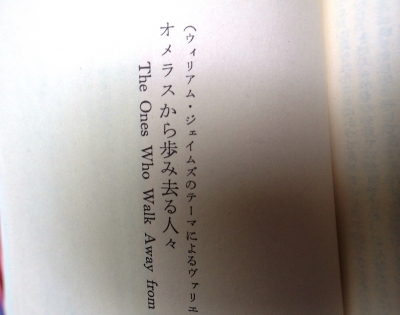 (ウィリアム・ジェイムズのテーマによるヴァリエ
オメラスから歩み去る人々
The Ones Who Walk Away from